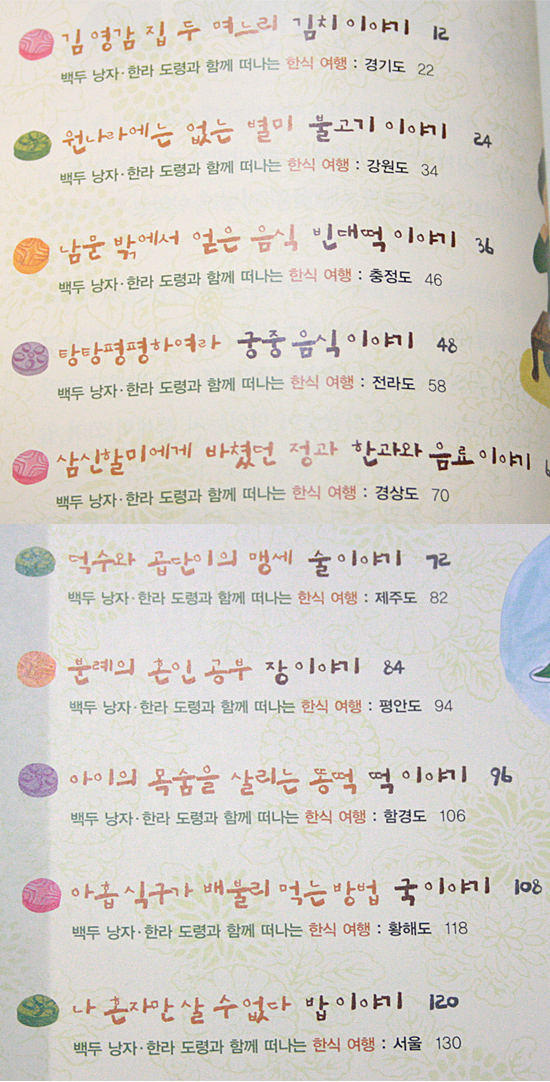 김 영감 집 두 며느리 김치 이야기 12
백두 낭자·한라 도령과 함께 떠나는 한식 여행 : 경기도 22
원나라에는 없는 별미 불고기 이야기 24
백두 낭자·한라 도령과 함께 떠나는 한식 여행 : 강원도 34
남문 밖에서 얻은 음식 빈대떡 이야기 36
백두 낭자·한라 도령과 함께 떠나는 한식 여행 : 충정도 46
탕탕평평하여라 궁중 음식 이야기 48
백두 낭자·한라 도령과 함께 떠나는 한식 여행 : 전라도 58
삼신할미에게 바쳤던 정과 한과와 음료 이야기
백두 낭자·한라 도령과 함께 떠나는 한식 여행 : 경상도 70
덕수와 곱단이의 맹세 술 이야기 72
백두 낭자·한라 도령과 함께 떠나는 한식 여행 : 제주도 82
분례의 혼인 공부 장 이야기 84
백두 낭자·한라 도령과 함께 떠나는 한식 여행 : 평안도 94
아이의 목숨을 살리는 똥떡 떡 이야기 96
백두 낭자·한라 도령과 함께 떠나는 한식 여행 : 함경도 106
아홉 식구가 배불리 먹는 방법 국 이야기 108
백두 낭자·한라 도령과 함께 떠나는 한식 여행 : 황해도 118
나 혼자만 살 수 없다 밥 이야기 120
백두 낭자·한라 도령과 함께 떠나는 한식 여행 : 서울 130